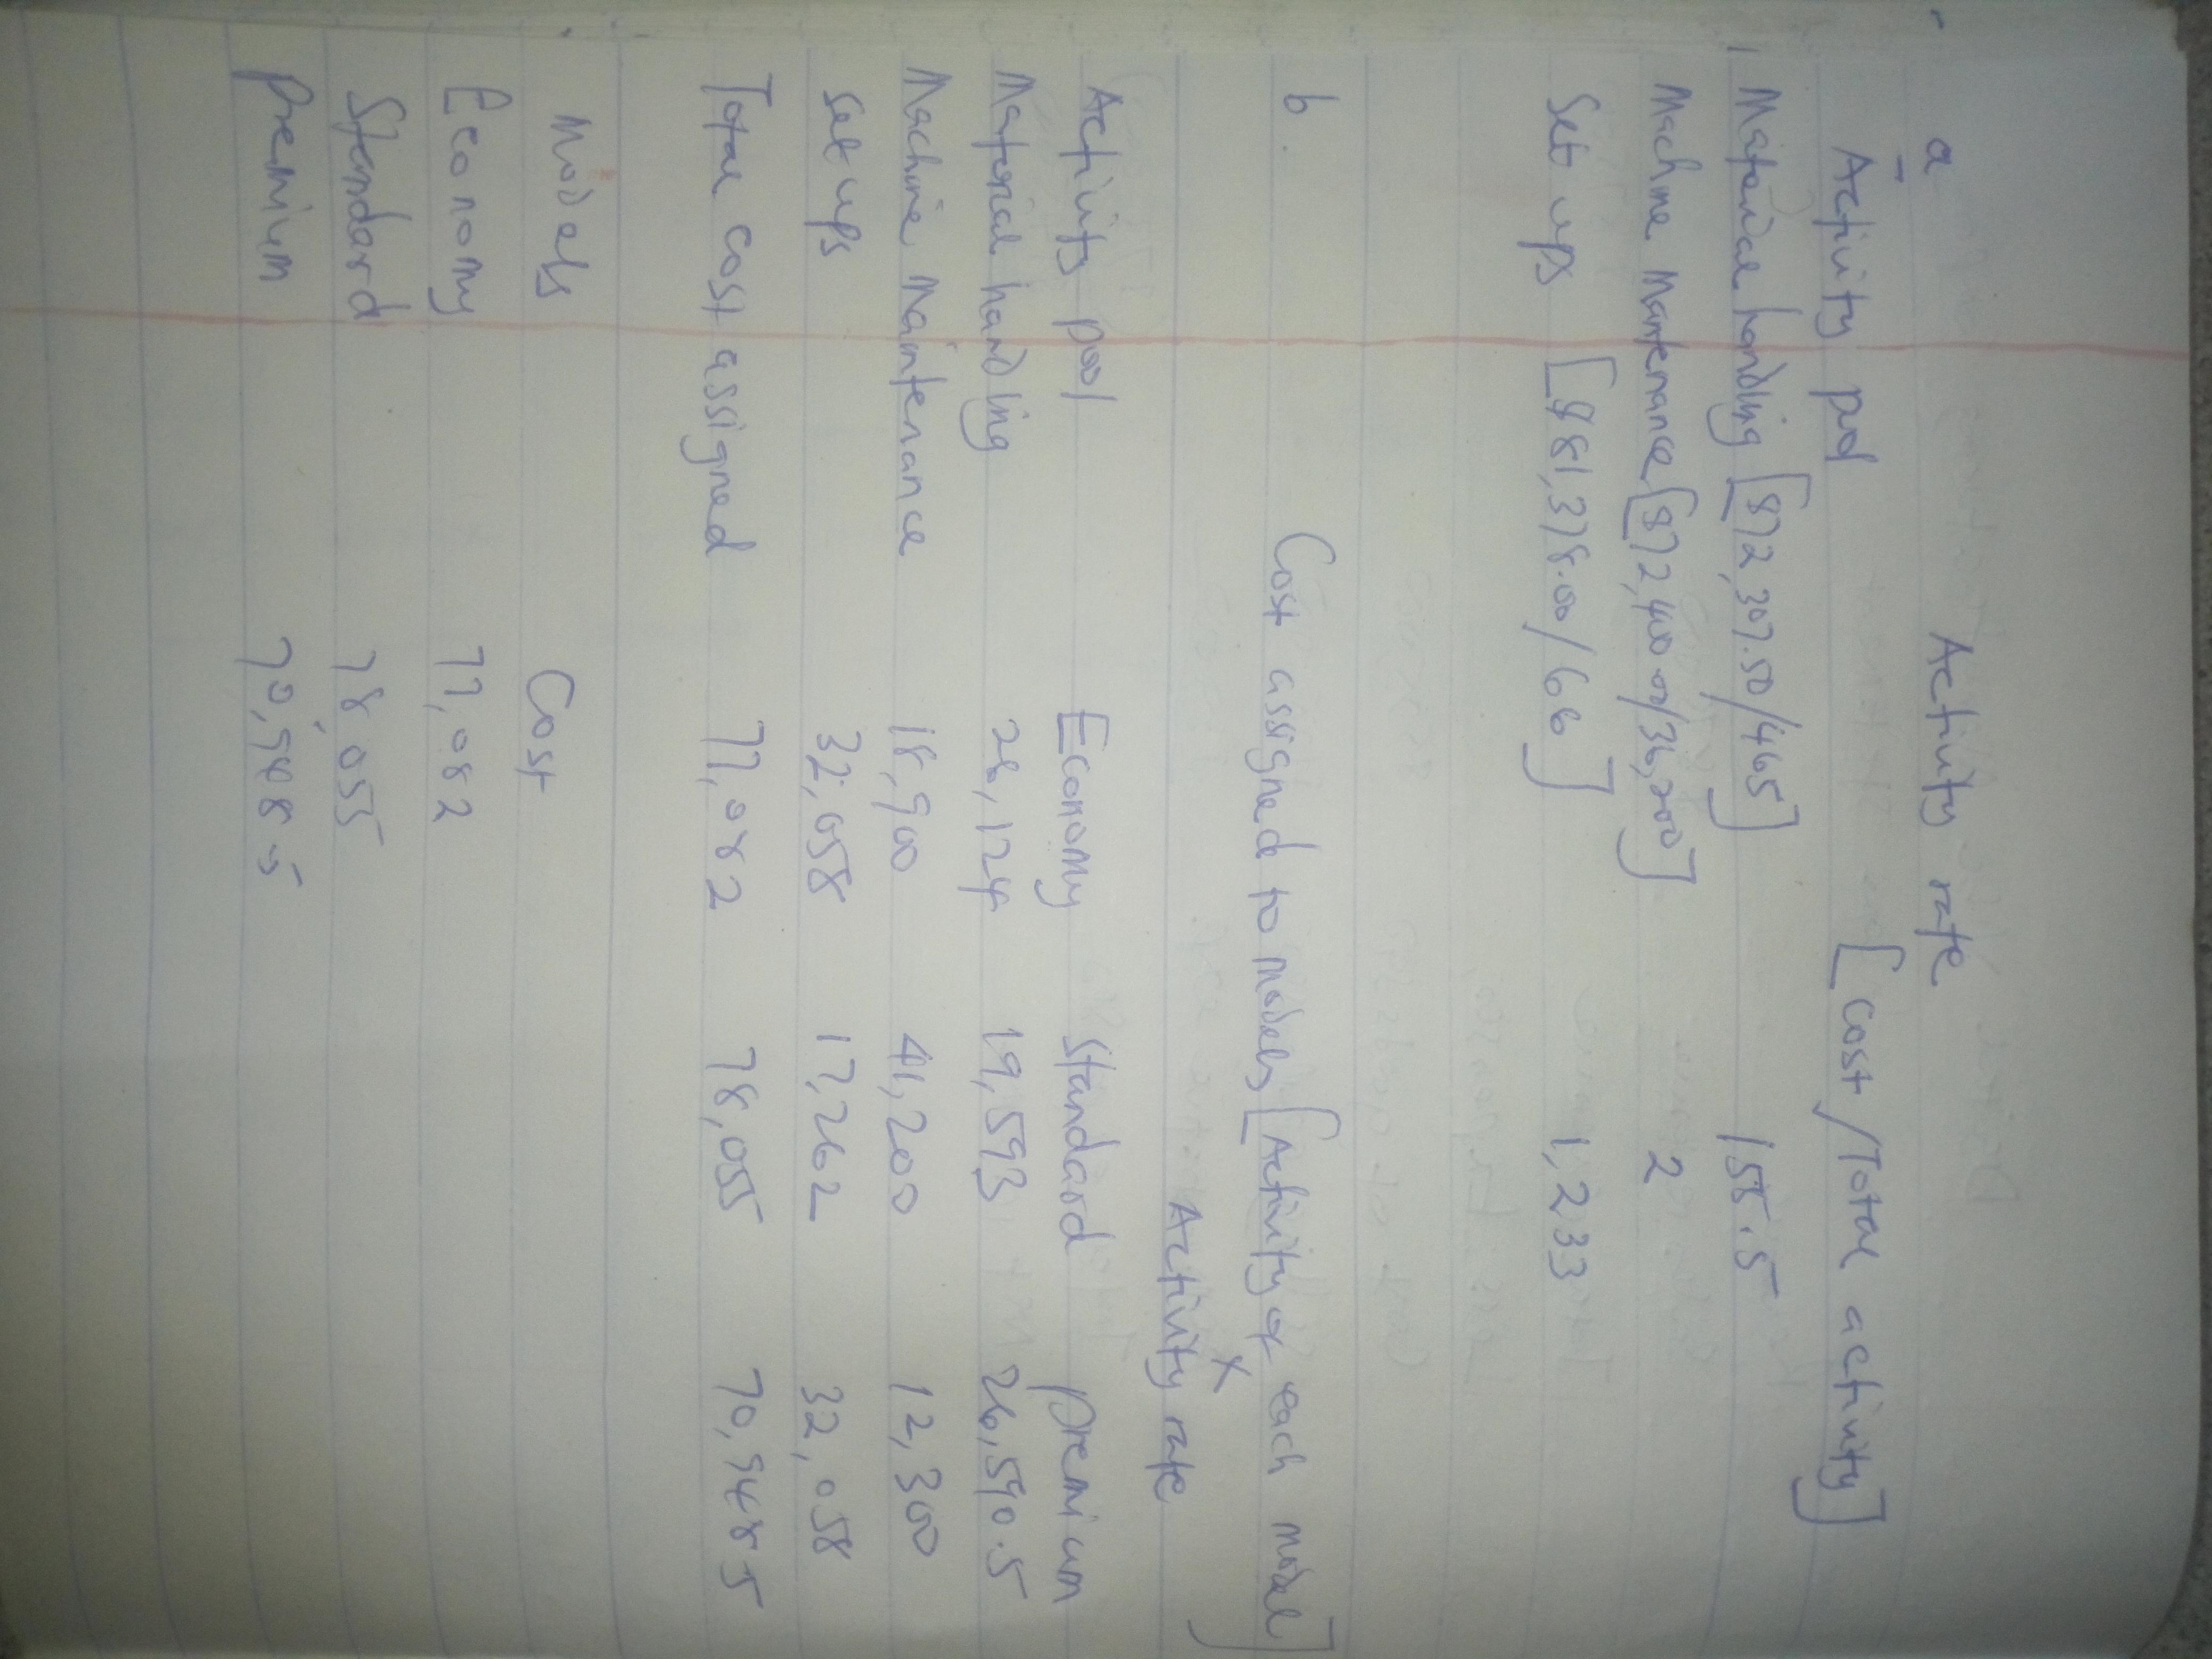 a
Activity rate
Activity pol [cost/Total activity]
Material handling [$72,307.50/465] 155.5
Machine Maintenance [$72,400.00/36,200] 2
Set ups [$81,378.00/66] 1,233
b. Cost assigned to models [Activity of each model
x
Activity rate]
Activity pool Economy Standard premium
Material handling 26,124 19,593 26,590.5
Machine Maintenance 18,900 41,200 12,300
Set ups 32,058 17,262 32,058
Total cost assigned 77,082 78,055 70,948.5
Models Cost
Economy 77,082
Standard 78,055
premium 70,948.5